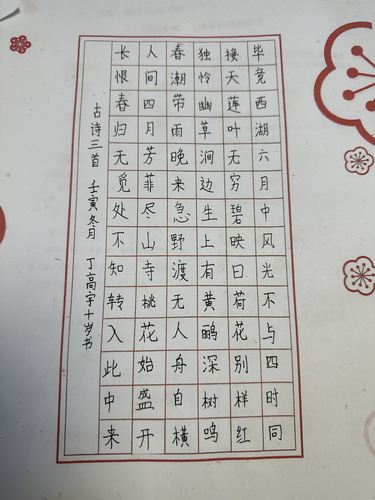 毕竟西湖六月中风光不与四时同
接天莲叶无穷碧映日荷花别样红
独怜幽草涧边生上有黄鹂深树鸣
春潮带雨晚来急野渡无人舟自横
人间四月芳菲尽山寺桃花始盛开
长恨春归无觅处不知转入此中来
古诗三首 壬寅冬月 丁高宇十岁书